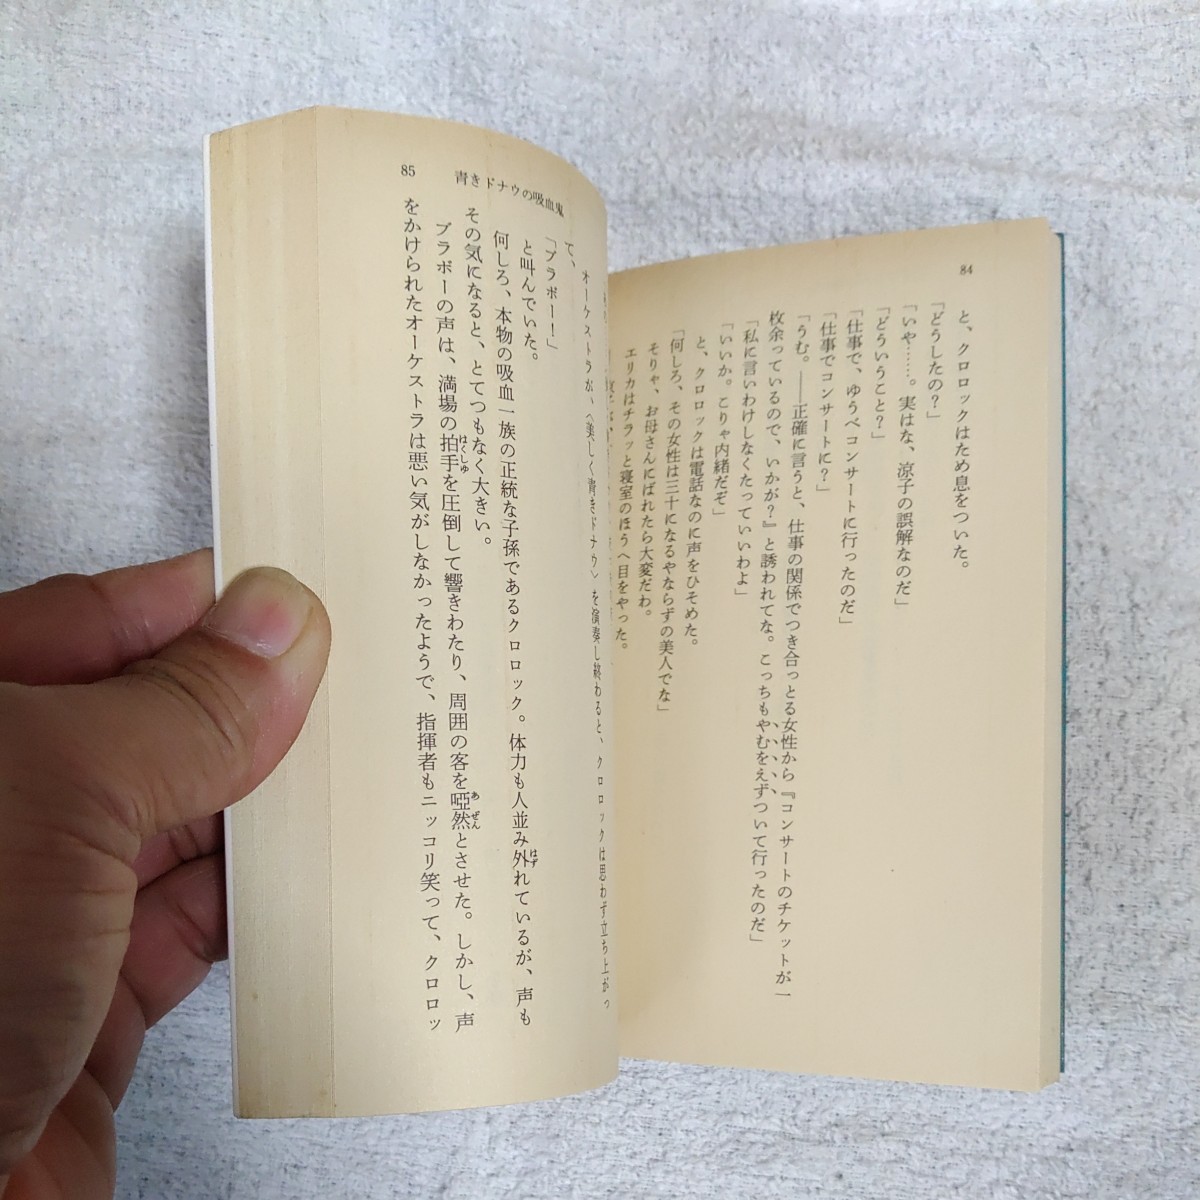 84
と、クロロックはため息をついた。
「どうしたの？」
「いや……。実はな、涼子の誤解なのだ」
「どういうこと？」
「仕事で、ゆうべコンサートに行ったのだ」
「仕事でコンサートに？」
「うむ。――正確に言うと、仕事の関係でつき合っとる女性から『コンサートのチケットが一
枚余っているので、いかが？』と誘われてな。こっちもやむをえずついて行ったのだ」
「私に言いわけしなくたっていいわよ」
「いいか。こりゃ内緒だぞ」
と、クロロックは電話なのに声をひそめた。
「何しろ、その女性は三十になるやならずの美人でな」
そりゃ、お母さんにばれたら大変だわ。
エリカはチラッと寝室のほうへ目をやった。
85 青きドナウの吸血鬼
オーケストラが、〈美しく青きドナウ〉を演奏し終わると、クロロックは思わず立ち上がっ
て、
「ブラボー！」
と叫んでいた。
何しろ、本物の吸血一族の正統な子孫であるクロロック。体力も人並み外れているが、声も
その気になると、とてつもなく大きい。
ブラボーの声は、満場の拍手を圧倒して響きわたり、周囲の客を啞然とさせた。しかし、声
をかけられたオーケストラは悪い気がしなかったようで、指揮者もニッコリ笑って、クロロッ